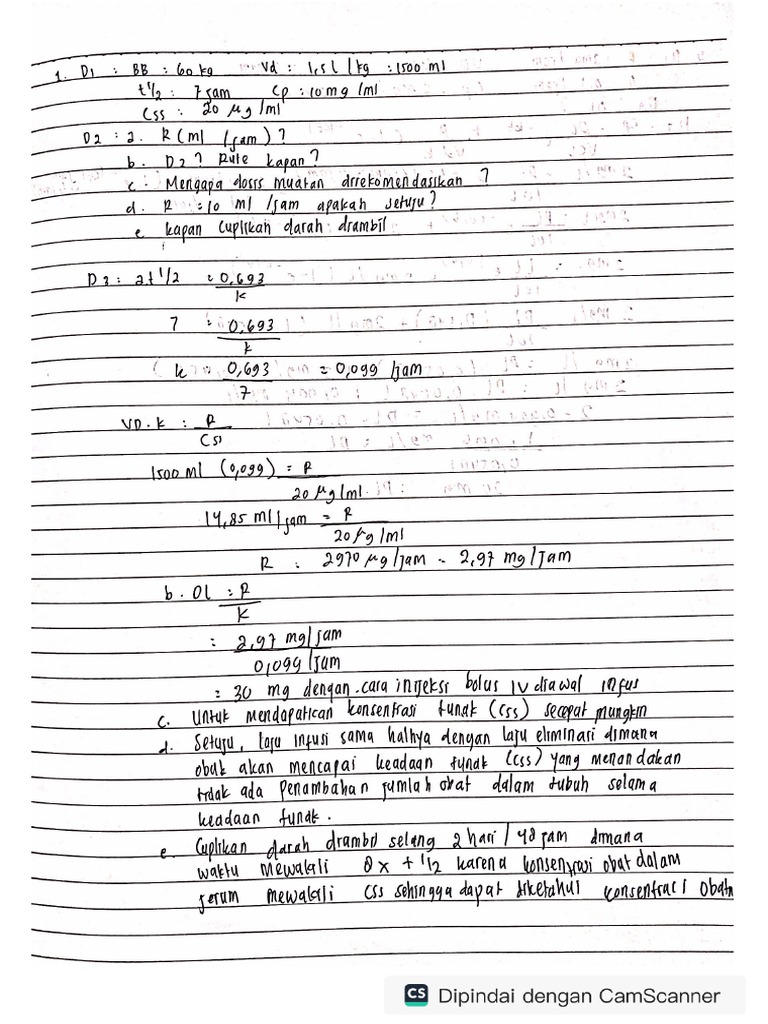 1. D1 : BB : 60 kg Vd : 1,5 l / kg : 1500 ml
t½ : 7 jam Cp : 10 mg /ml
Css : 20 μg /ml
D2 : a. R (ml /jam) ?
b. DL ? Rute kapan ?
c. Mengapa dosis muatan direkomendasikan ?
d. R : 10 ml /jam apakah setuju ?
e kapan cuplikan darah diambil
D3 : a t ½ = 0,693
k
7 = 0,693
k
k = 0,693 = 0,099 /jam
7
VD . k : R
Css
1500 ml (0,099) = R
20 μg/ml
14,85 ml/jam = R
20 μg /ml
R : 2970 μg /jam = 2,97 mg/jam
b. DL = R
k
: 2,97 mg/jam
0,099 /jam
= 30 mg dengan cara injeksi bolus IV diawal infus
c. Untuk mendapatkan konsentrasi tunak (Css) secepat mungkin
d. Setuju, laju infusi sama halnya dengan laju eliminasi dimana
obat akan mencapai keadaan tunak (css) yang menandakan
tidak ada penambahan jumlah obat dalam tubuh selama
keadaan tunak.
e. Cuplikan darah diambil selang 2 hari / 48 jam dimana
waktu mewakili 8 x t ½ karena konsentrasi obat dalam
serum mewakili css sehingga dapat diketahui konsentrasi obatn
CS Dipindai dengan CamScanner